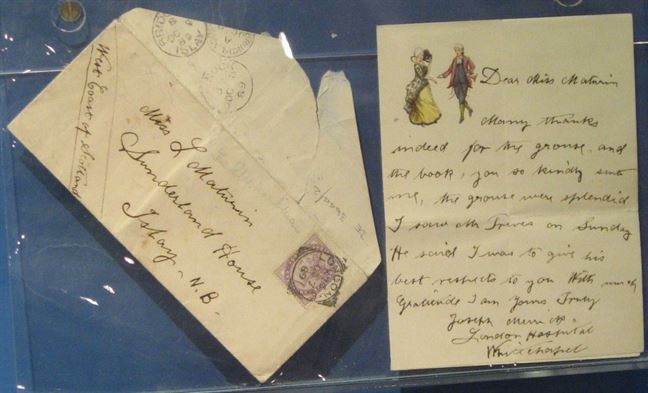 West Coast of Scotland
Miss L Maturin
Sunderland House
Islay. N.B.
Dear Miss Maturin
Many thanks
indeed for the grouse. and
the book, you so kindly sent
me, the grouse were splendid
I saw Mr Treves on Sunday
He said I was to give his
best respects to you With much
Gratitude I am Yours Truly
Joseph Merrick.
London Hospital
Whitechapel